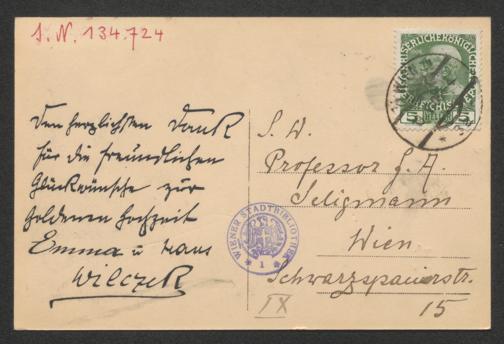 I. N. 134.724
Den herzlichsten Dank
für die freundlichen
Glückwünsche zur
goldenen Hochzeit
Emma u Hans
Wilczek
S. W.
Professor
Seligmann
Wien
Schwarzspanierstr.
15
IX
WIENER STADTBIBLIOTHEK
1
5 5